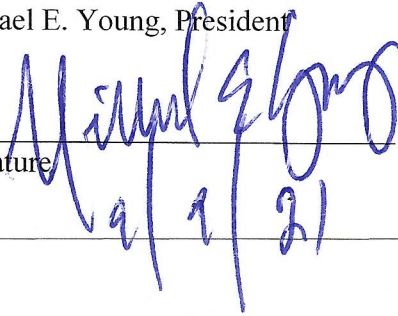 ael E. Young, President
Michael E Young
ature
9/9/21